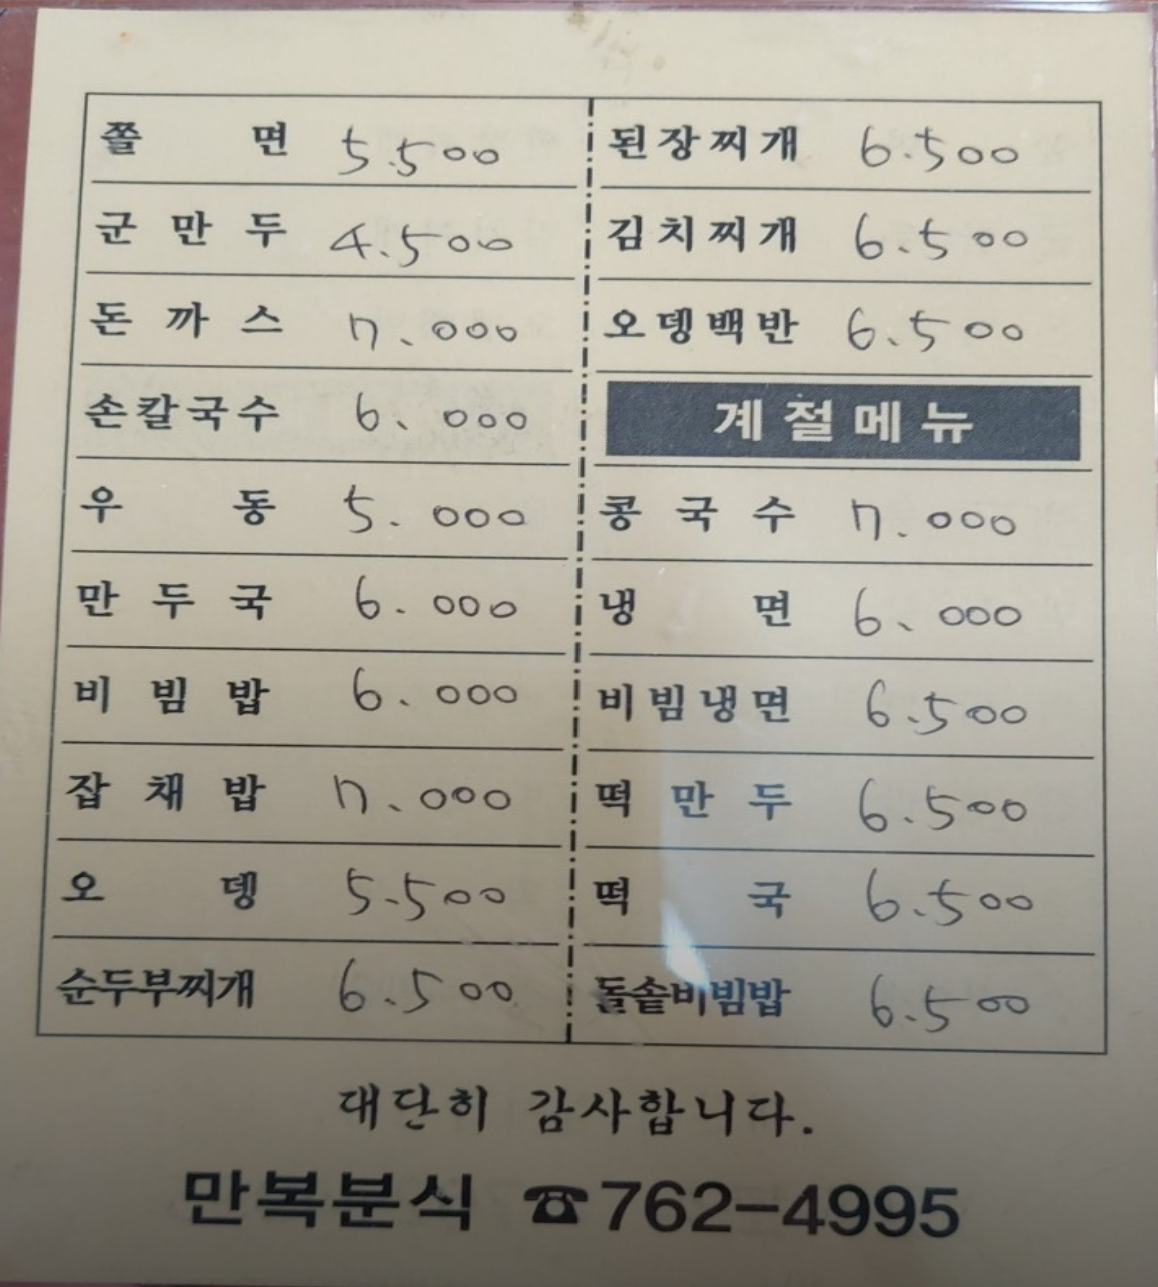 쫄 면 5.500
군 만 두 4.500
돈 까 스 7.000
손칼국수 6.000
우 동 5.000
만 두 국 6.000
비 빔 밥 6.000
잡 채 밥 7.000
오 뎅 5.500
순두부찌개 6.500
된장찌개 6.500
김치찌개 6.500
오뎅백반 6.500
계절메뉴
콩 국 수 7.000
냉 면 6.000
비빔냉면 6.500
떡 만 두 6.500
떡 국 6.500
돌솥비빔밥 6.500
대단히 감사합니다.
만복분식 ☎762-4995